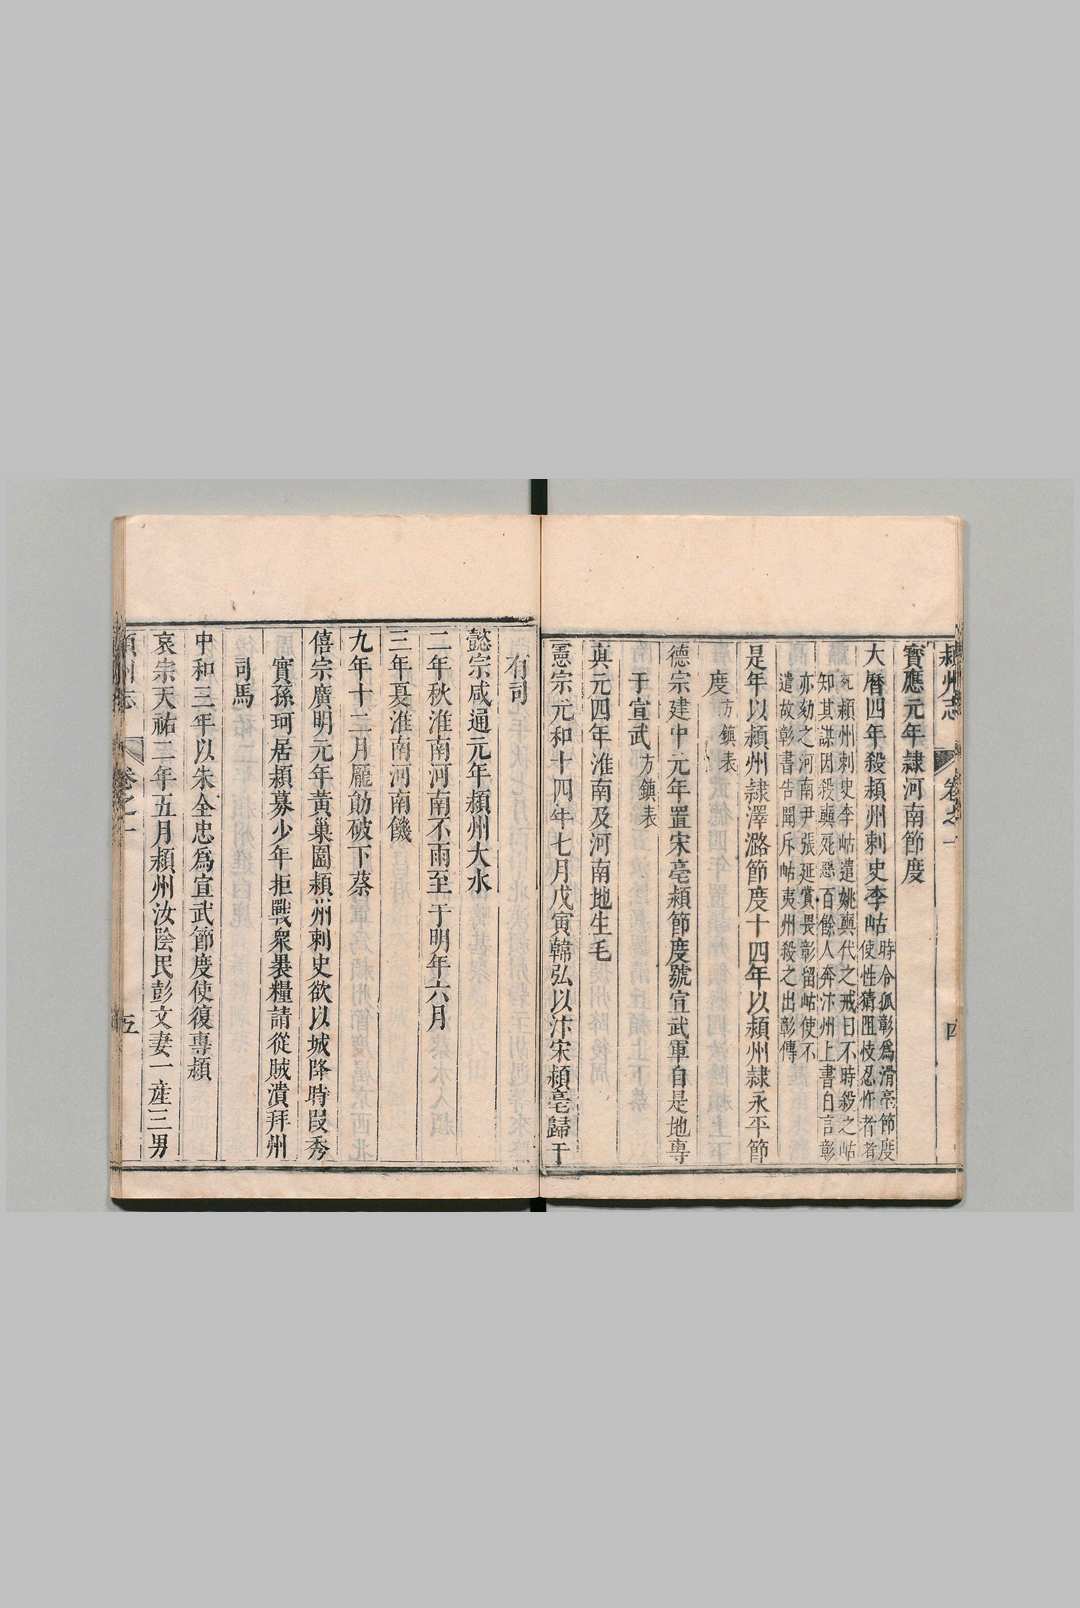 潁州志 卷之一 四
寶應元年隷河南節度
大曆四年殺潁州刺史李岵時令狐彰爲滑亳節度
使性猜阻忮忍忤者者
死潁州刺史李岵遣姚奭代之戒曰不時殺之岵
知其謀因殺奭死㦤百餘人奔汴州上書自言彰
亦劾之河南尹張延賞畏彰留岵使不
遣故彰書告聞斥岵夷州殺之出彰傳
是年以潁州隷澤潞節度十四年以潁州隷永平節
度方鎮表
德宗建中元年置宋亳潁節度號宣武軍自是地專
于宣武方鎮表
真元四年淮南及河南地生毛
憲宗元和十四年七月戊寅韓弘以汴宋潁亳歸于
有司
懿宗咸通元年潁州大水
二年秋淮南河南不雨至于明年六月
三年夏淮南河南饑
九年十二月龐勛破下蔡
僖宗廣明元年黃巢圍潁州刺史欲以城降時叚秀
實孫珂居潁募少年拒戰衆褁糧請從賊潰拜州
司馬
中和三年以朱全忠爲宣武節度使復專潁
哀宗天祐二年五月潁州汝陰民彭文妻一產三男
潁州志 卷之一 五